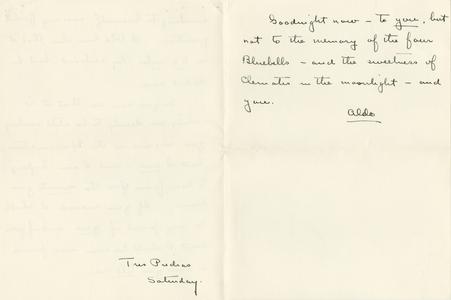 Goodnight now – to you, but
not to the memory of the four
Bluebells – and the sweetness of
Clematis in the moonlight – and
you.
Aldo
Tres Piedras
Saturday.